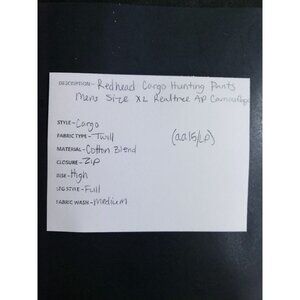 DESCRIPTION - Redhead Cargo Hunting Pants
Mens Size XL Realtree AP Camouflage
STYLE - Cargo
FABRIC TYPE - Twill (aa15/LP)
MATERIAL - Cotton Blend
CLOSURE - Zip
RISE - High
LEG STYLE - Full
FABRIC WASH - Medium